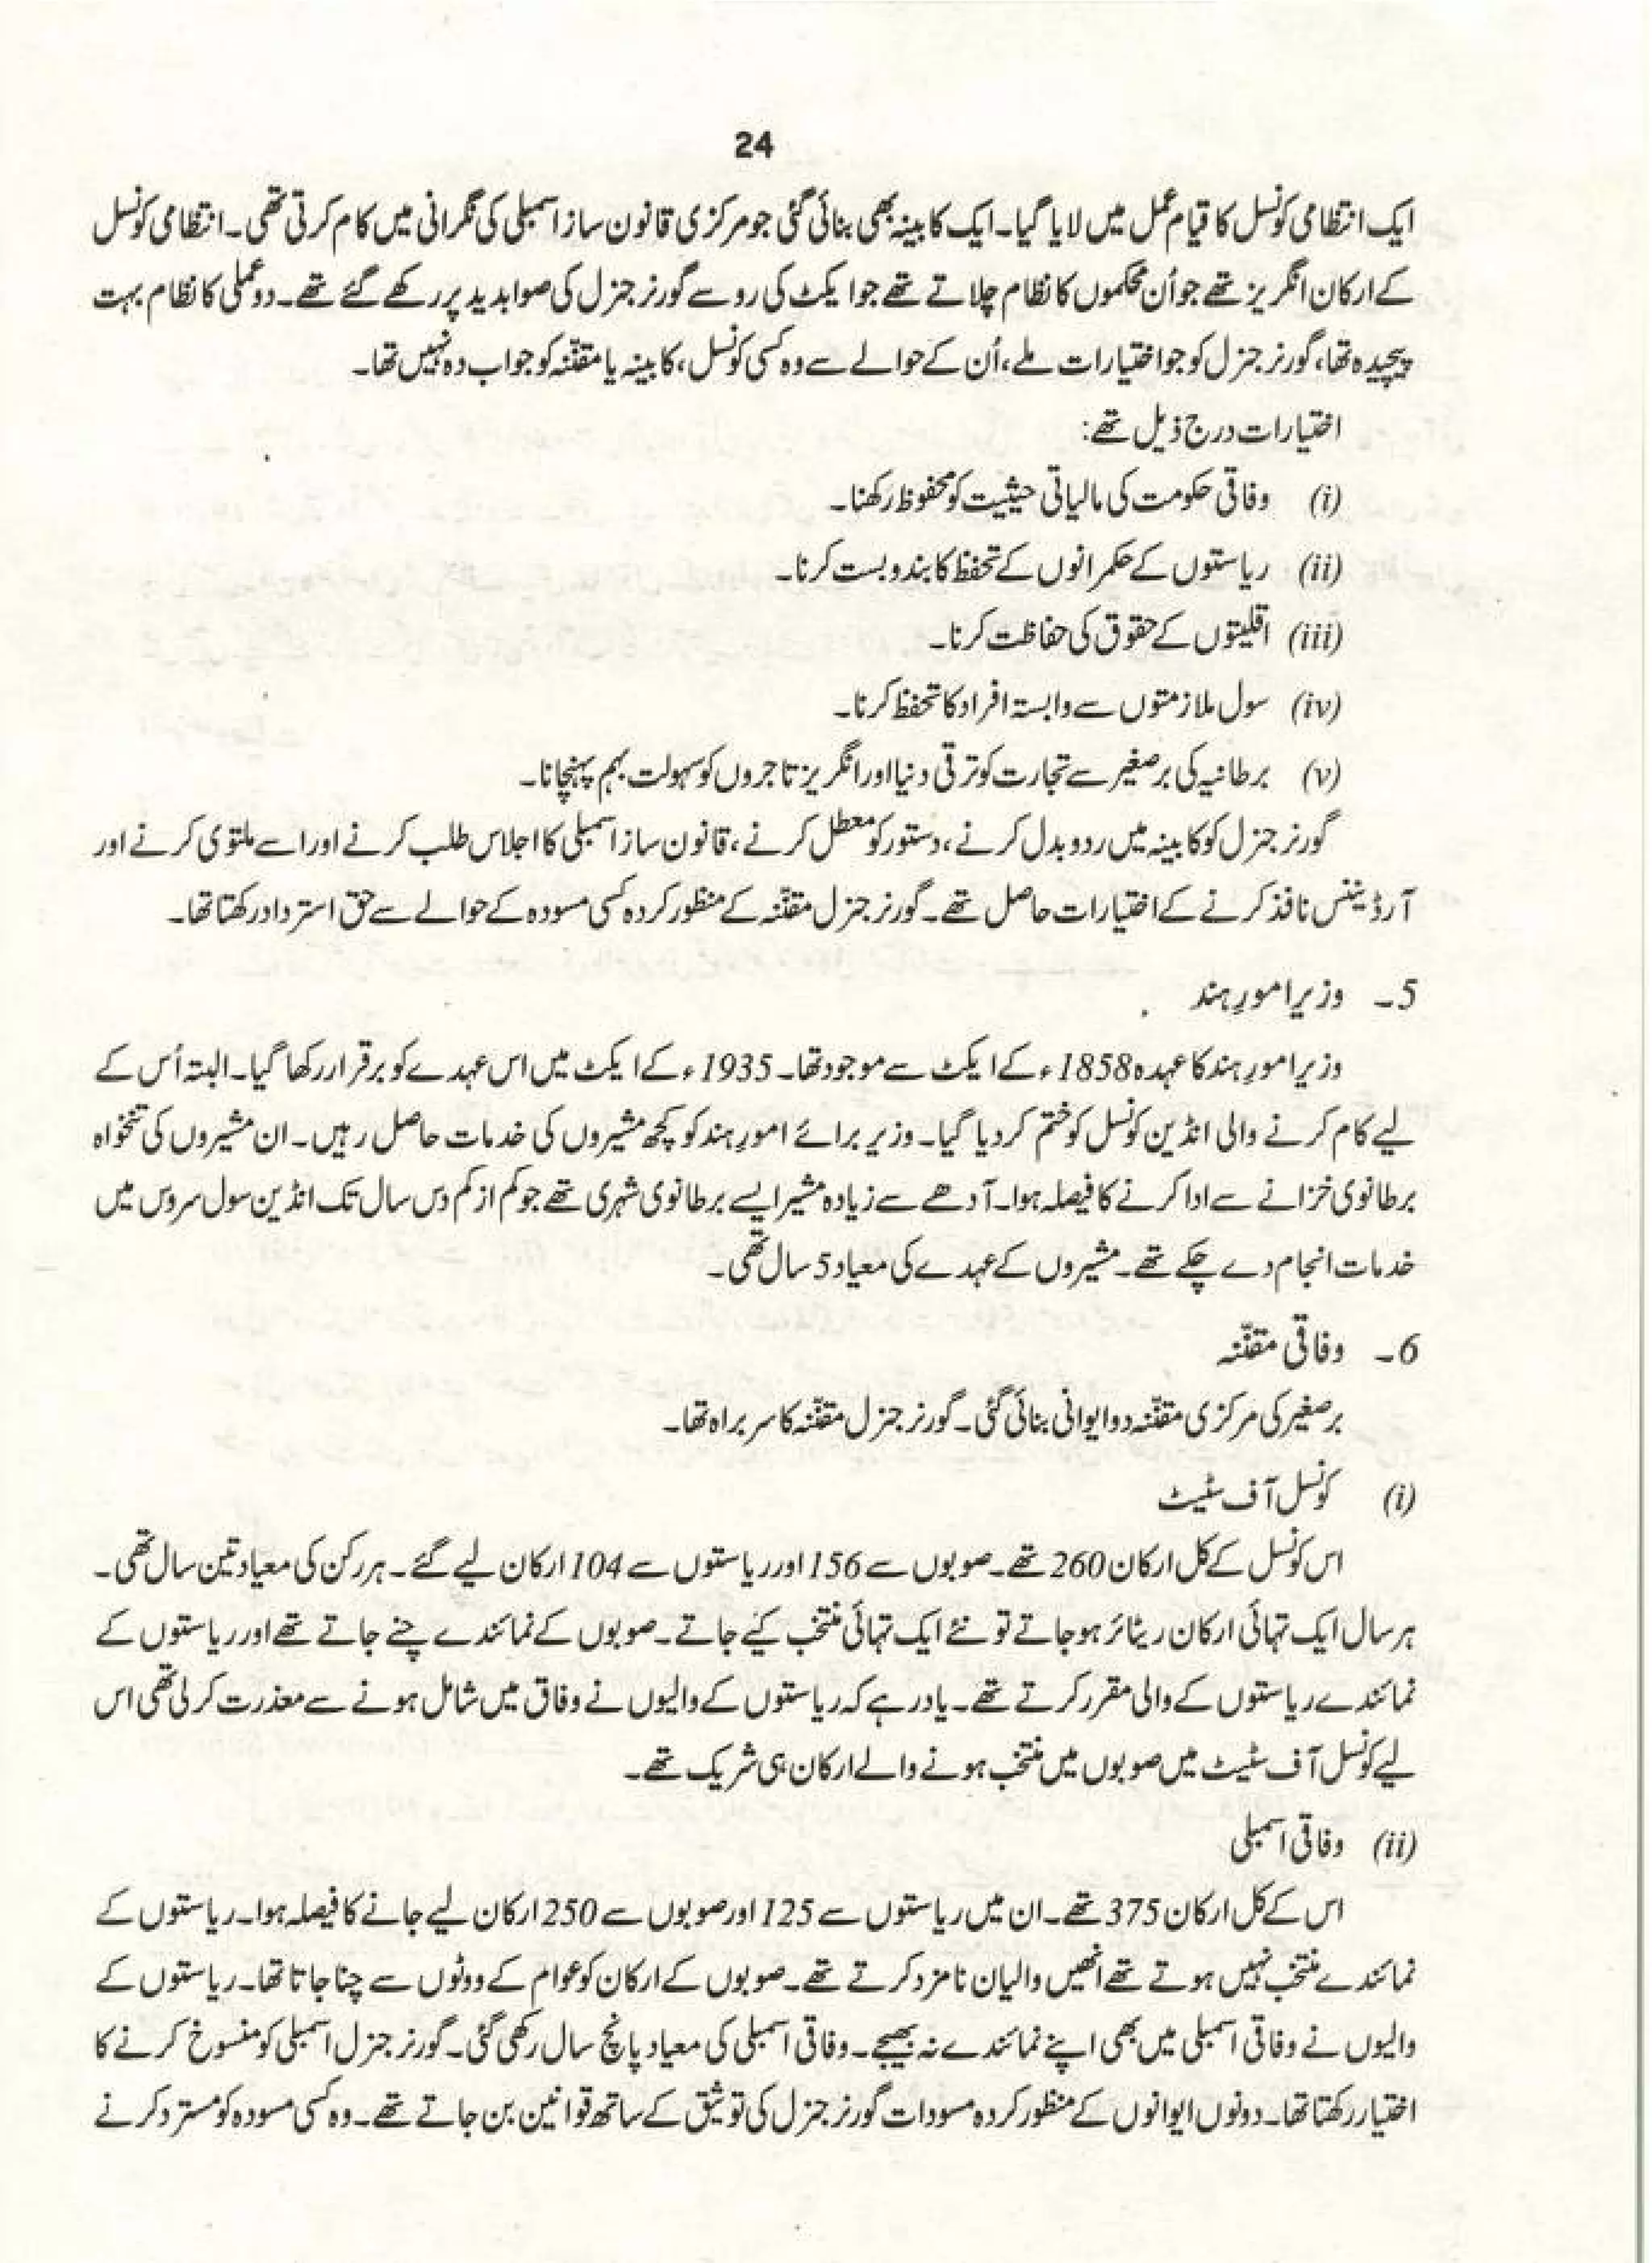 24
ایک انتظامی کونسل کا قیام عمل میں لایا گیا۔ ایک کابینہ بھی بنائی گئی جو مرکزی قانون ساز اسمبلی کی نگرانی میں کام کرتی تھی۔ انتظامی کونسل
کے ارکان انگریز تھے جو اُن محکموں کا نظام چلاتے تھے جو ایکٹ کی رو سے گورنر جنرل کی صوابدید پر رکھے گئے تھے۔ دو عملی کا نظام بہت
پیچیدہ تھا، گورنر جنرل کو جو اختیارات ملے، اُن کے حوالے سے وہ کسی کونسل، کابینہ یا مقنّنہ کو جواب دہ نہیں تھا۔
اختیارات درج ذیل تھے:
(i) وفاقی حکومت کی مالیاتی حیثیت کو محفوظ رکھنا۔
(ii) ریاستوں کے حکمرانوں کے تحفظ کا بندوبست کرنا۔
(iii) اقلیتوں کے حقوق کی حفاظت کرنا۔
(iv) سول ملازمتوں سے وابستہ افراد کا تحفظ کرنا۔
(v) برطانیہ کی برصغیر سے تجارت کو ترقی دنیا اور انگریز تاجروں کو سہولت بہم پہنچانا۔
گورنر جنرل کو کابینہ میں ردوبدل کرنے، دستور کو معطل کرنے، قانون ساز اسمبلی کا اجلاس طلب کرنے اور اسے ملتوی کرنے اور
آرڈیننس نافذ کرنے کے اختیارات حاصل تھے۔ گورنر جنرل مقنّنہ کے منظور کردہ کسی مسودہ کے حوالے سے حق استرداد رکھتا تھا۔
5۔ وزیر امورِ ہند
وزیر امورِ ہند کا عہدہ 1858ء کے ایکٹ سے موجود تھا۔ 1935ء کے ایکٹ میں اس عہدے کو برقرار رکھا گیا۔ البتہ اُس کے
لیے کام کرنے والی انڈین کونسل کو ختم کر دیا گیا۔ وزیر برائے امورِ ہند کو کچھ مشیروں کی خدمات حاصل رہیں۔ ان مشیروں کی تنخواہ
برطانوی خزانے سے ادا کرنے کا فیصلہ ہوا۔ آدھے سے زیادہ مشیر ایسے برطانوی شہری تھے جو کم از کم دس سال تک انڈین سول سروس میں
خدمات انجام دے چکے تھے۔ مشیروں کے عہدے کی معیاد 5 سال تھی۔
6۔ وفاقی مقنّنہ
برصغیر کی مرکزی مقنّنہ دو ایوانی بنائی گئی۔ گورنر جنرل مقنّنہ کا سربراہ تھا۔
(i) کونسل آف سٹیٹ
اس کونسل کے کل ارکان 260 تھے۔ صوبوں سے 156 اور ریاستوں سے 104 ارکان لیے گئے۔ ہر رکن کی معیاد تین سال تھی۔
ہر سال ایک تہائی ارکان ریٹائر ہو جاتے تو نئے ایک تہائی منتخب کیے جاتے۔ صوبوں کے نمائندے چنے جاتے تھے اور ریاستوں کے
نمائندے ریاستوں کے والی مقرر کرتے تھے۔ یاد رہے کہ ریاستوں کے والیوں نے وفاق میں شامل ہونے سے معذرت کر لی تھی اس
لیے کونسل آف سٹیٹ میں صوبوں میں منتخب ہونے والے ارکان ہی شریک تھے۔
(ii) وفاقی اسمبلی
اس کے کل ارکان 375 تھے۔ ان میں ریاستوں سے 125 اور صوبوں سے 250 ارکان لیے جانے کا فیصلہ ہوا۔ ریاستوں کے
نمائندے منتخب نہیں ہوتے تھے انھیں والیان نامزد کرتے تھے۔ صوبوں کے ارکان کو عوام کے ووٹوں سے چنا جاتا تھا۔ ریاستوں کے
والیوں نے وفاقی اسمبلی میں بھی اپنے نمائندے نہ بھیجے۔ وفاقی اسمبلی کی معیاد پانچ سال رکھی گئی۔ گورنر جنرل اسمبلی کو منسوخ کرنے کا
اختیار رکھتا تھا۔ دونوں ایوانوں کے منظور کردہ مسودات گورنر جنرل کی توثیق کے ساتھ قوانین بن جاتے تھے۔ وہ کسی مسودہ کو مسترد کرنے